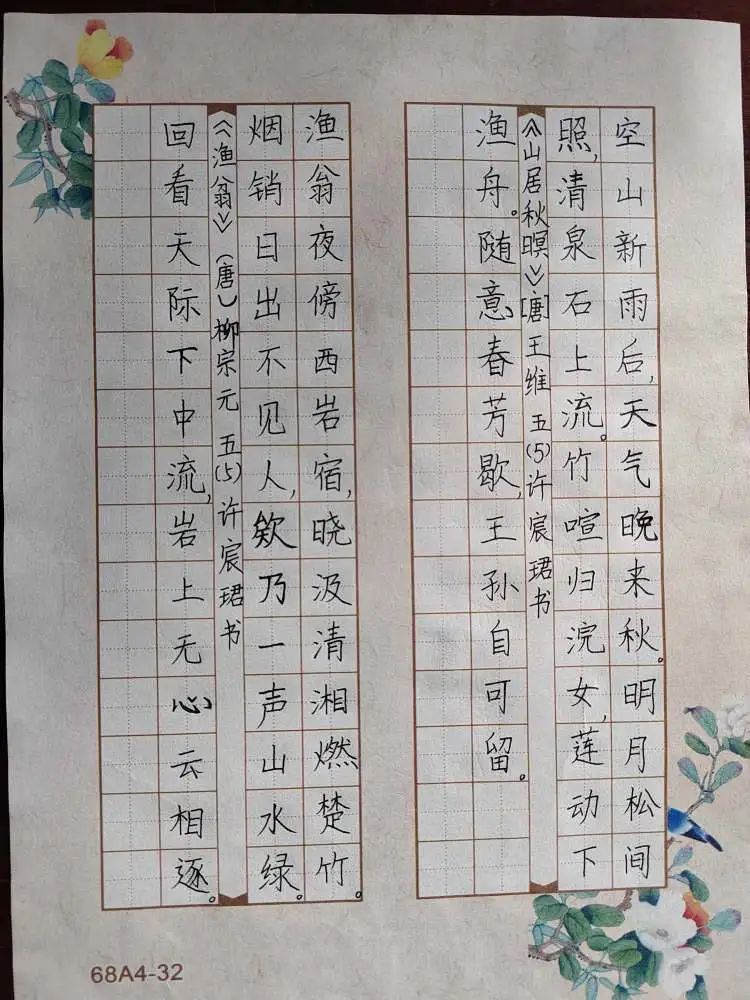 空山新雨后,天气晚来秋。明月松间
照,清泉石上流。竹喧归浣女,莲动下
《山居秋暝》[唐]王维 五(5)许宸珺书
渔舟。随意春芳歇,王孙自可留。
渔翁夜傍西岩宿,晓汲清湘燃楚竹。
烟销日出不见人,欸乃一声山水绿。
《渔翁》(唐)柳宗元 五(5)许宸珺书
回看天际下中流,岩上无心云相逐。
68A4-32